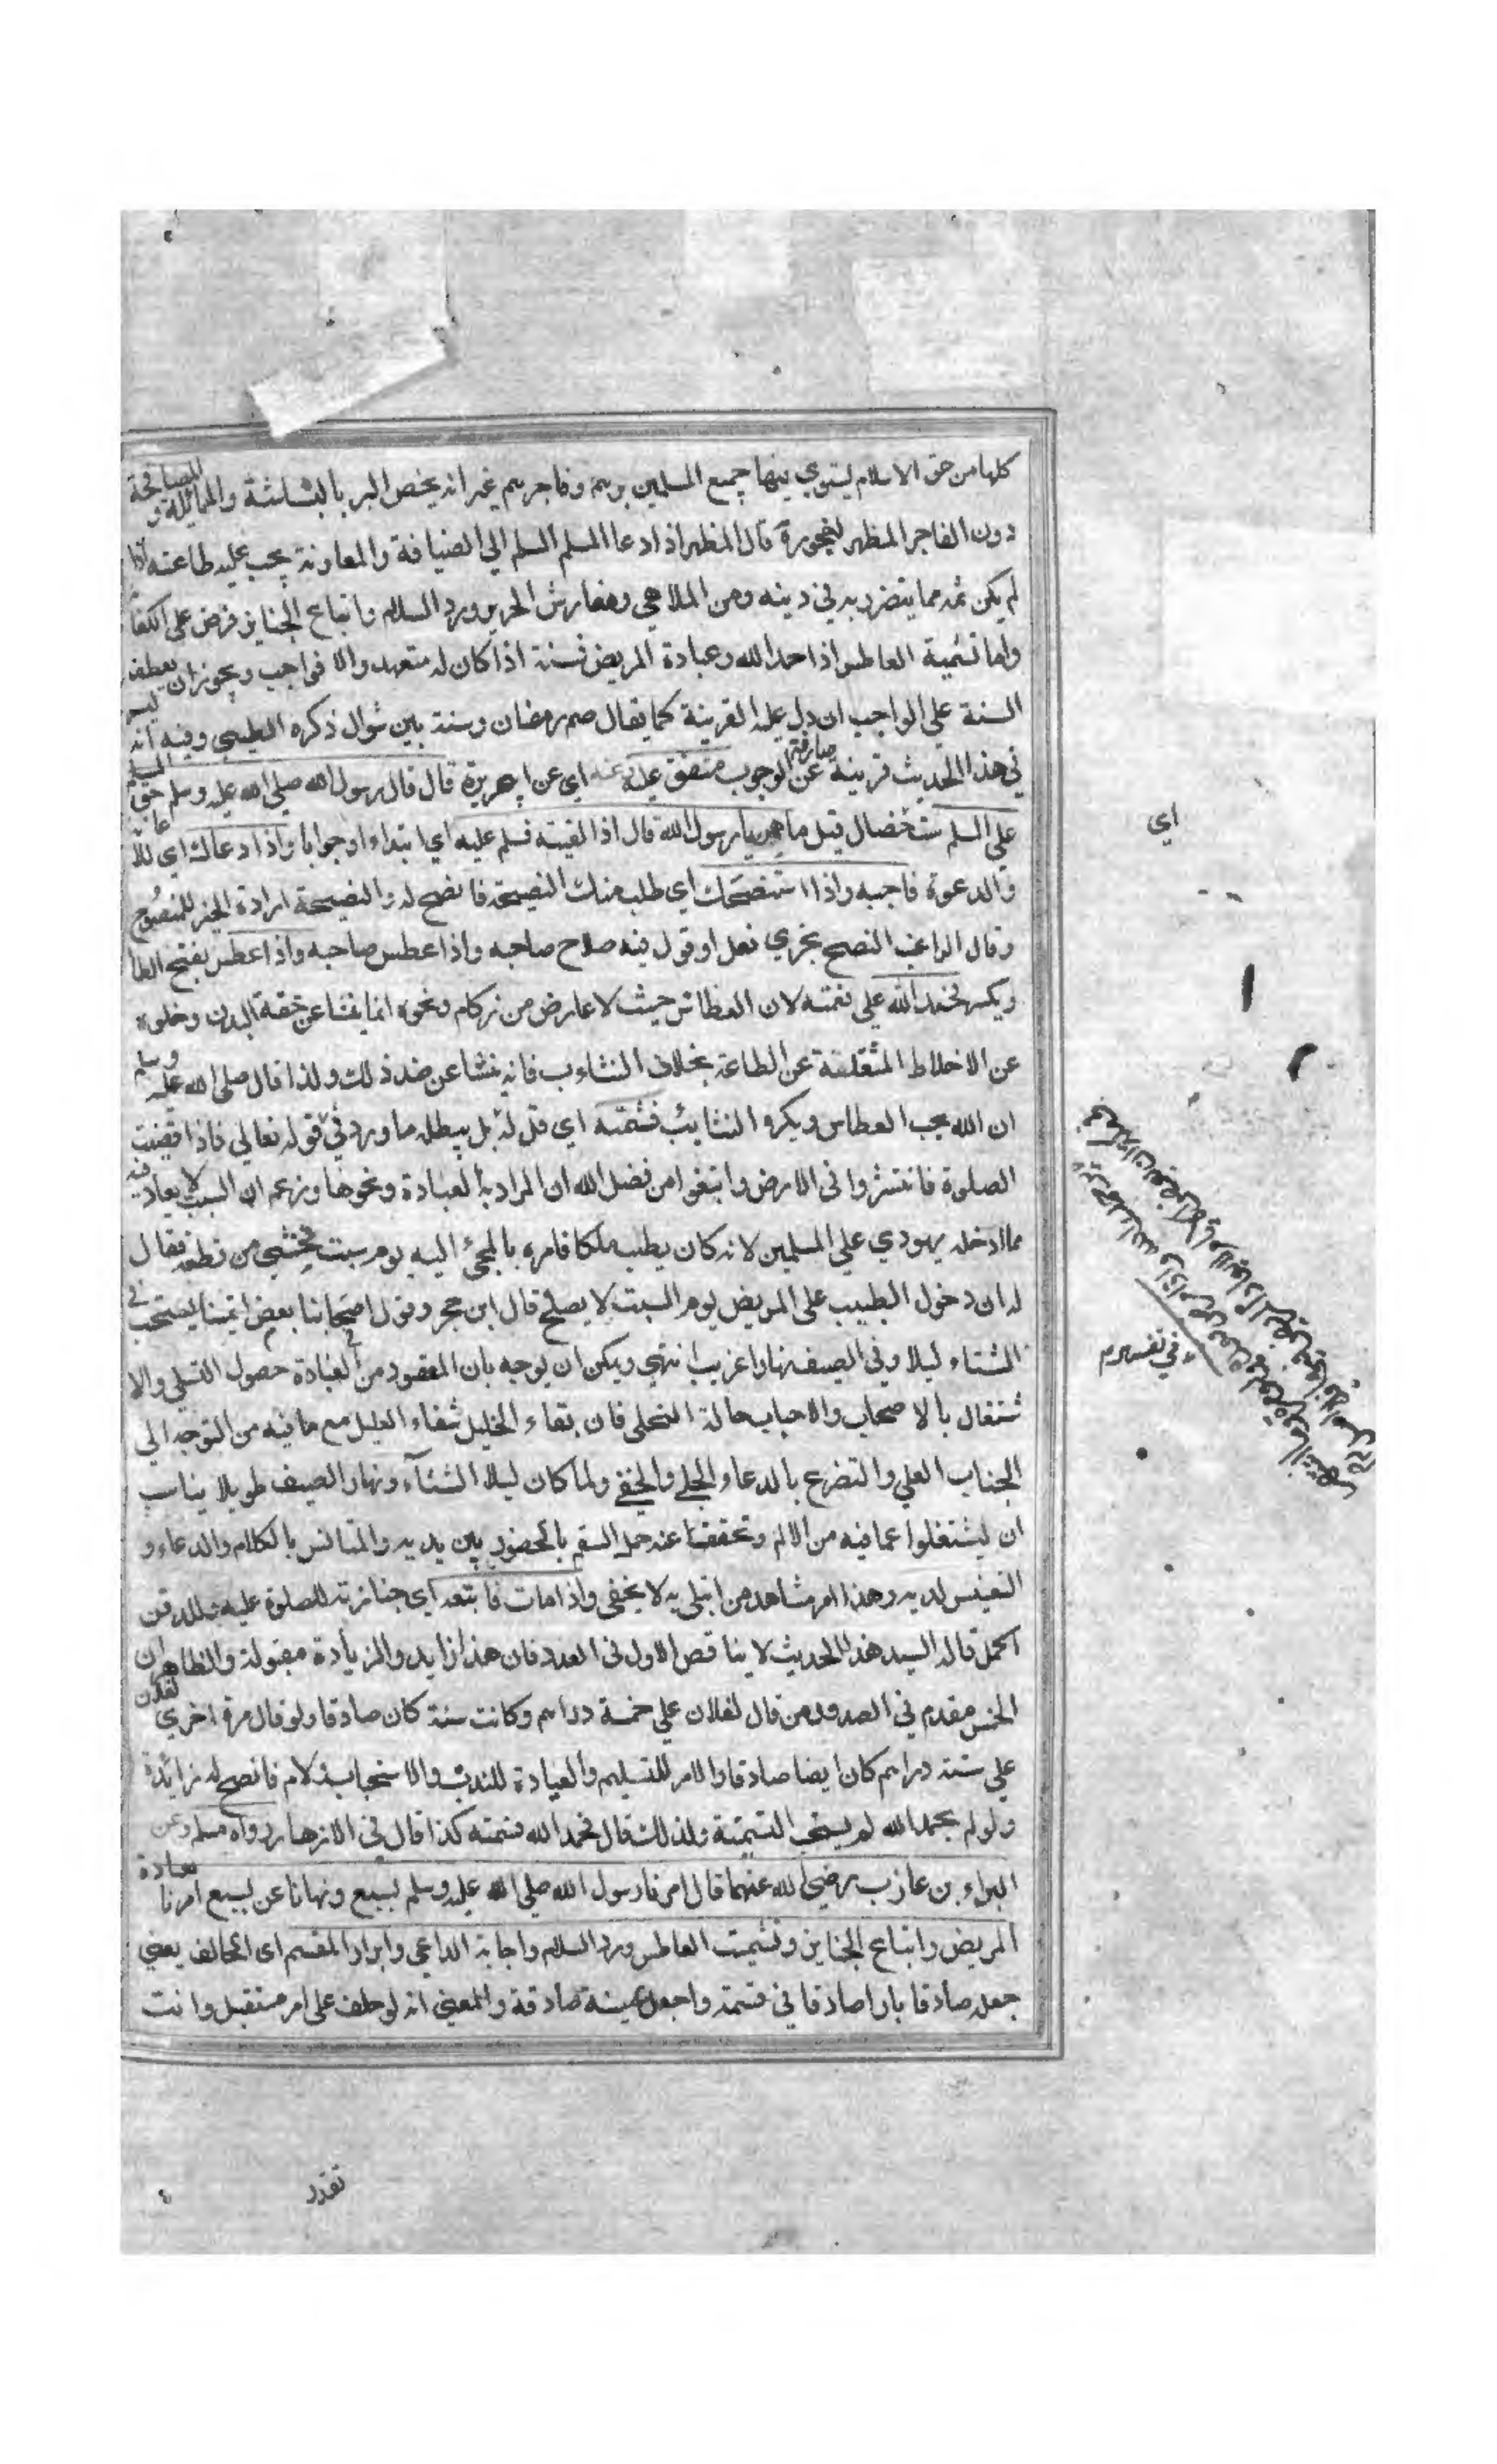 كلها من حق الاسلام يستوي فيها جميع المسلمين برهم وفاجرهم غير انه يخص البر بالبشاشة والمسائلة و المصافحة
دون الفاجر المظهر لفجوره قال المظهر اذا دعا المسلم المسلم الي الضيافة والمعاونة يجب عليه طاعته اذا
لم يكن ثمه مما يتضرر به في دينه ومن الملاهي ومفارش الحرير ورد السلام واتباع الجنايز فرض على الكفا
واما تشمية العاطس اذا حمد الله وعيادة المريض فسنة اذا كان له متعهد والا فواجب ويجوز ان يعطف
السنة علي الواجب ان دل عليه القرينة كما يقال صم رمضان وستة من شوال ذكره الطيبي وفيه انه ليس
في هذا الحديث قرينة صارفة عن الوجوب متفق عليه وعنه اي عن ابي هريرة قال قال رسول الله صلى الله عليه وسلم حق المسلم
علي المسلم ست خصال قيل ما هن يا رسول الله قال اذا لقيته فسلم عليه اي ابتداء او جوابا واذا دعاك اي للاعا
والدعوة فاجبه واذا استنصحك اي طلب منك النصيحة فانصح له والنصيحة ارادة الخير للمنصوح
وقال الراغب النصح تحري فعل او قول فيه صلاح صاحبه واذا عطس صاحبه واذا عطس بفتح الطا
ويكسر فحمد الله علي نعمته لان العطاس حيث لا عارض من زكام ونحوه انما ينشا عن خفة البدن وخلوه
عن الاخلاط المثقلة عن الطاعة بخلاف التثاوب فانه ينشا عن ضد ذلك ولذا قال صلى الله عليه وسلم
ان الله يحب العطاس ويكره التثايب فشمته اي قل له بل يبطله ما ورد في قوله تعالي فاذا قضيت
الصلوة فانتشروا في الارض وابتغوا من فضل الله ان المراد به العيادة ونحوها وزعم ان السبت لا يعاد فيه
مما ادخله يهودي علي المسلمين لانه كان يطيب ملكا فامره بالمجئ اليه يوم سبت فخشي من قطعه فقال
له ان دخول الطبيب على المريض يوم السبت لا يصلح قال ابن حجر وقول اصحابنا بعض ايمتنا يستحب في
الشتاء ليلا وفي الصيف نهارا غريب انتهى ويمكن ان يوجه بان المقصود من العيادة حصول التسلي والا
شتغال بالاصحاب والاحباب حالة التخلي فان بقاء الخليل شفاء العليل مع ما فيه من التوجه الى
الجناب العلي والتضرع بالدعاء الجلي والخفي ولما كان ليلا الشتاء ونهار الصيف طويلا يناسب
ان يشتغلوا عما فيه من الالم وتخففا عنه حمل السقم بالحضور بين يديه والتانس بالكلام والدعاء و
التنفيس لديه وهذا امر مشاهد من ابتلي به لا يخفى واذا مات فاتبعه اي جنازته للصلوة عليه وللدفن
اكمل قال السيد هذا الحديث لا يناقض الاول في العدد فان هذا زايد والزيادة مقبولة والظاهر ان
الخمس مقدم في الصدور من قال لفلان علي خمسة دراهم وكانت ستة كان صادقا ولو قال مرة اخري لفلان
علي ستة دراهم كان ايضا صادقا والامر للتسليم والعيادة للندب والاستحباب ولام فانصح له زائدة
ولو لم يحمد الله لم يستحب التشميتة ولذلك قال فحمد الله فشمته كذا قال في الازهار رواه مسلم وعن
البراء بن عازب رضي الله عنهما قال امرنا رسول الله صلى الله عليه وسلم بسبع ونهانا عن سبع امرنا بعيادة
المريض واتباع الجنايز وتشميت العاطس ورد السلام واجابة الداعي وابرار المقسم اى الحالف يعني
جعله صادقا بارا صادقا في قسمه واجعل يمينه صادقة والمعنى انه لو حلف على امر مستقبل وانت
اي
في تفسيرهم
تقدر